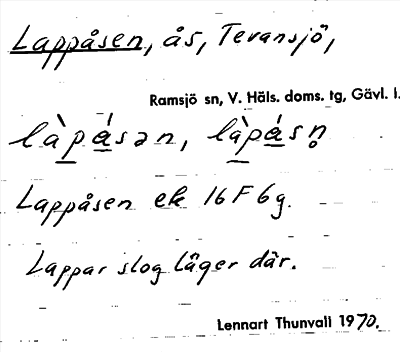 Lappåsen, ås, Tevansjö,
Ramsjö sn, V. Häls. doms. tg, Gävl. l.
là̱pá̱sən, là̱pá̱sn̥
Lappåsen ek 16 F 6 g.
Lappar slog läger där.
Lennart Thunvall 1970.